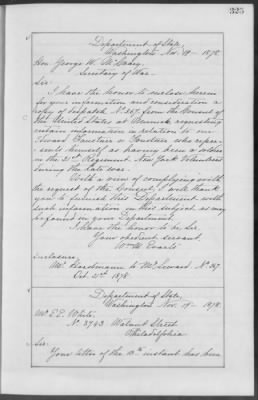 325
Department of State,
Washington Nov. 19th 1878.
Hon. George W. McCrary,
Secretary of War.
Sir:
I have the honor to enclose herein
for your information and consideration a
copy of despatch No. 267 from the Consul of
the United States at requesting
certain information in relation to one
Edward or who repre-
sents himself as having been a soldier
in the 21st Regiment New York Volunteers
during the late war.
With a view of complying with
the request of the Consul, I will thank
you to furnish this Department with
such information on this subject as may
be found in your Department.
I have the honor to be, Sir,
Your obedient servant,
Wm M. Evarts
Enclosure:
Mr. Boardmann to Mr. Seward. No. 267
Oct. 21st 1878.
Department of State,
Washington Nov. 19th 1878.
Mr. E.E. White,
No. 3743 Walnut Street,
Philadelphia
Sir:
Your letter of the 15th instant has been